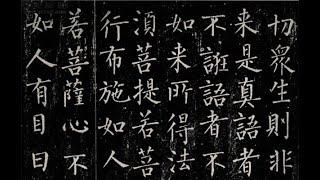 切衆生則非
来是真語者
不誑語者不
如来所得法
湏菩提若菩
行布施如人
若菩薩心不
如人有目日